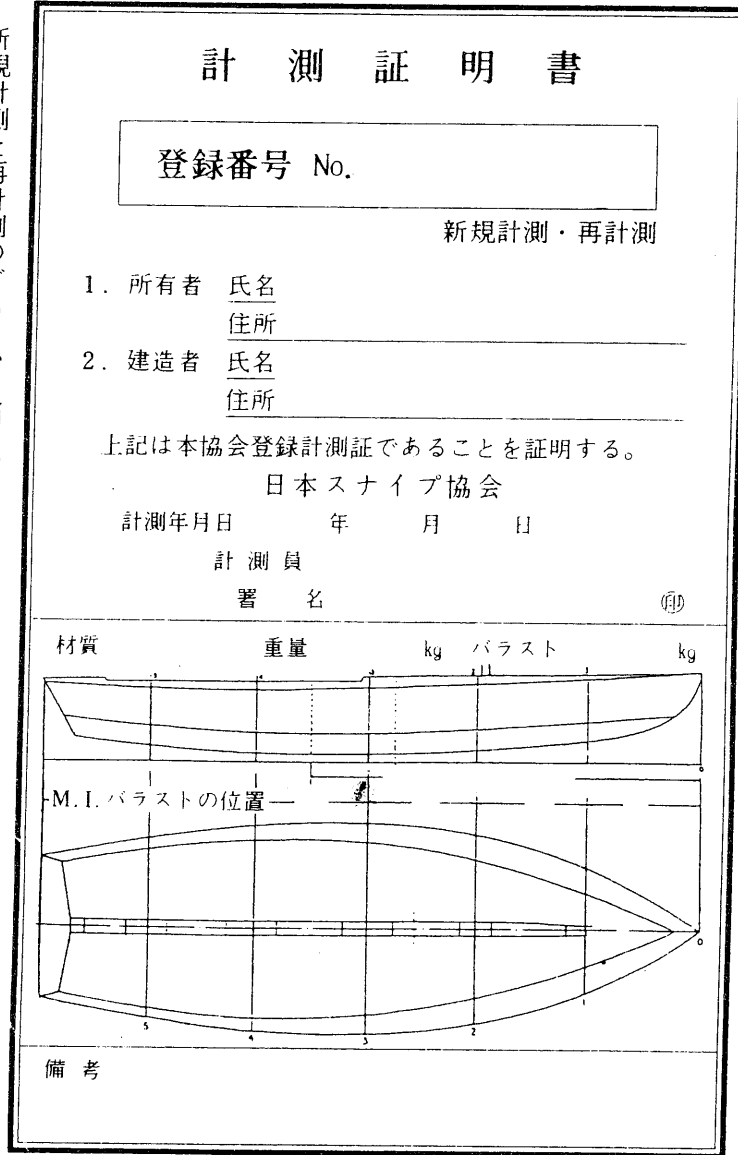 計測証明書
登録番号 No.
新規計測・再計測
1. 所有者 氏名
住所
2. 建造者 氏名
住所
上記は本協会登録計測証であることを証明する。
日本スナイプ協会
計測年月日 年 月 日
計測員
署名 ㊞
材質 重量 kg バラスト kg
5 4 3 2 1
0
M.I.バラストの位置
0
5 4 3 2 1
備考
新規計測と再計測の